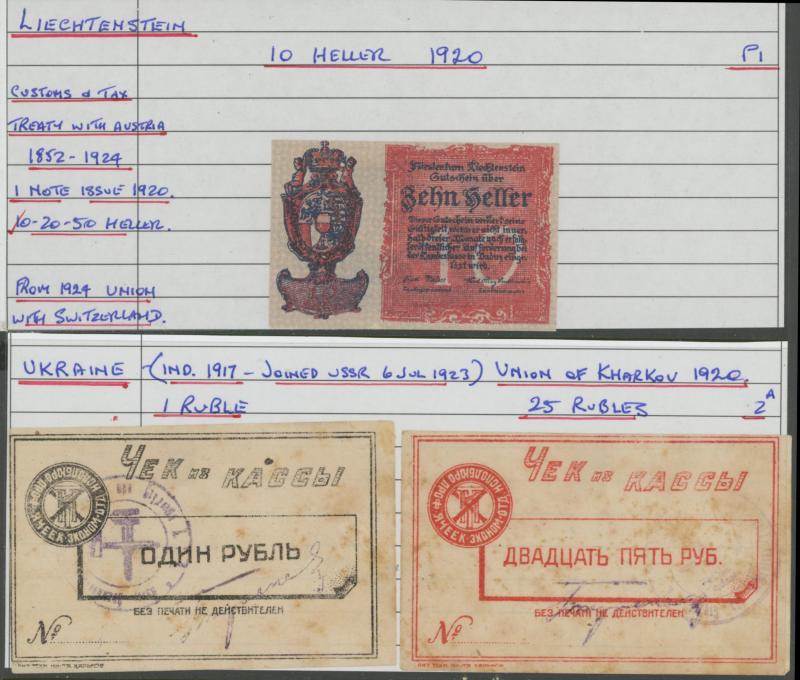 LIECHTENSTEIN
10 HELLER 1920 P1
CUSTOMS & TAX
TREATY WITH AUSTRIA
1852 - 1924
1 NOTE ISSUE 1920.
10-20-50 HELLER.
FROM 1924 UNION
WITH SWITZERLAND.
Fürstentum Liechtenstein
Gutschein über
Zehn Heller
Dieser Gutschein verliert seine
Gültigkeit wenn er nicht inner-
halb dreier Monate nach erfolg-
ter öffentlicher Aufforderung bei
der Landeskasse in Vaduz einge-
löst wird.
10
UKRAINE (IND. 1917 - JOINED USSR 6 JUL 1923) UNION OF KHARKOV 1920.
1 RUBLE 25 RUBLES 2A
ЧЕК ИЗ КАССЫ
ОДИН РУБЛЬ
БЕЗ ПЕЧАТИ НЕ ДЕЙСТВИТЕЛЕН
№
ЧЕК ИЗ КАССЫ
ДВАДЦАТЬ ПЯТЬ РУБ.
БЕЗ ПЕЧАТИ НЕ ДЕЙСТВИТЕЛЕН
№